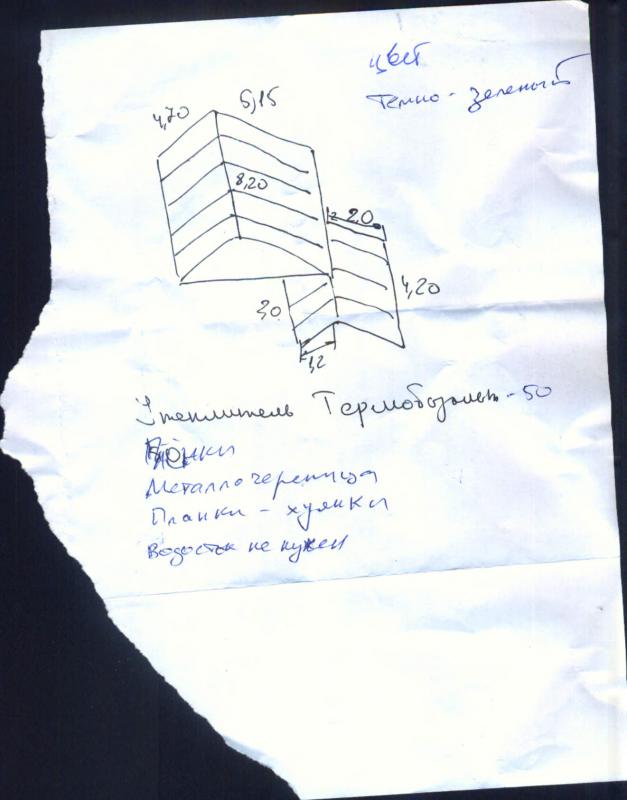 цвет
темно - зеленый
4,70
5,15
8,20
2,0
4,20
3,0
1,2
Утеплитель Термобазальт - 50
Металлочерепица
Планки - хуянки
водосток не нужен